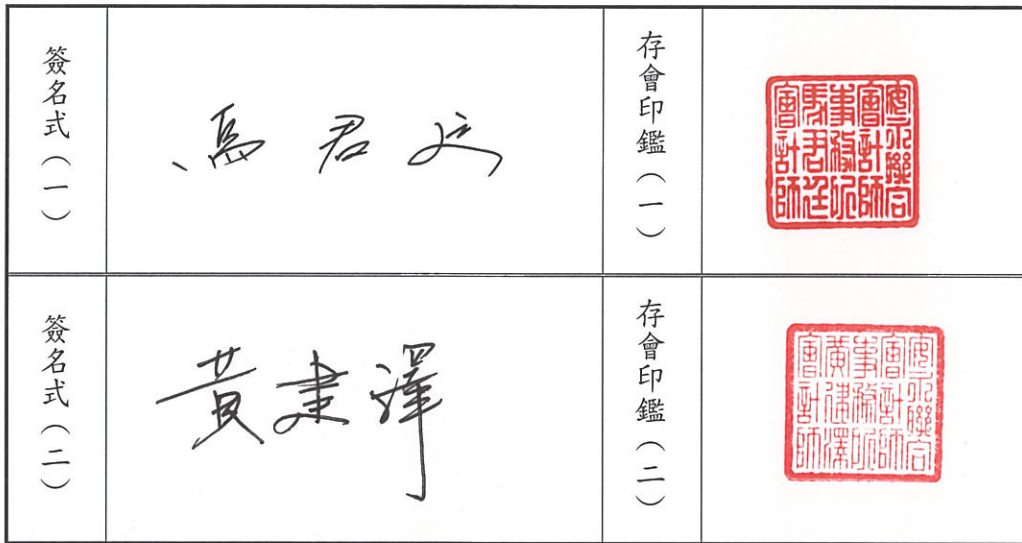 簽名式（一）
馬君廷
存會印鑑（一）
安永聯合
會計師
事務所
馬君廷
會計師
簽名式（二）
黃建澤
存會印鑑（二）
安永聯合
會計師
事務所
黃建澤
會計師